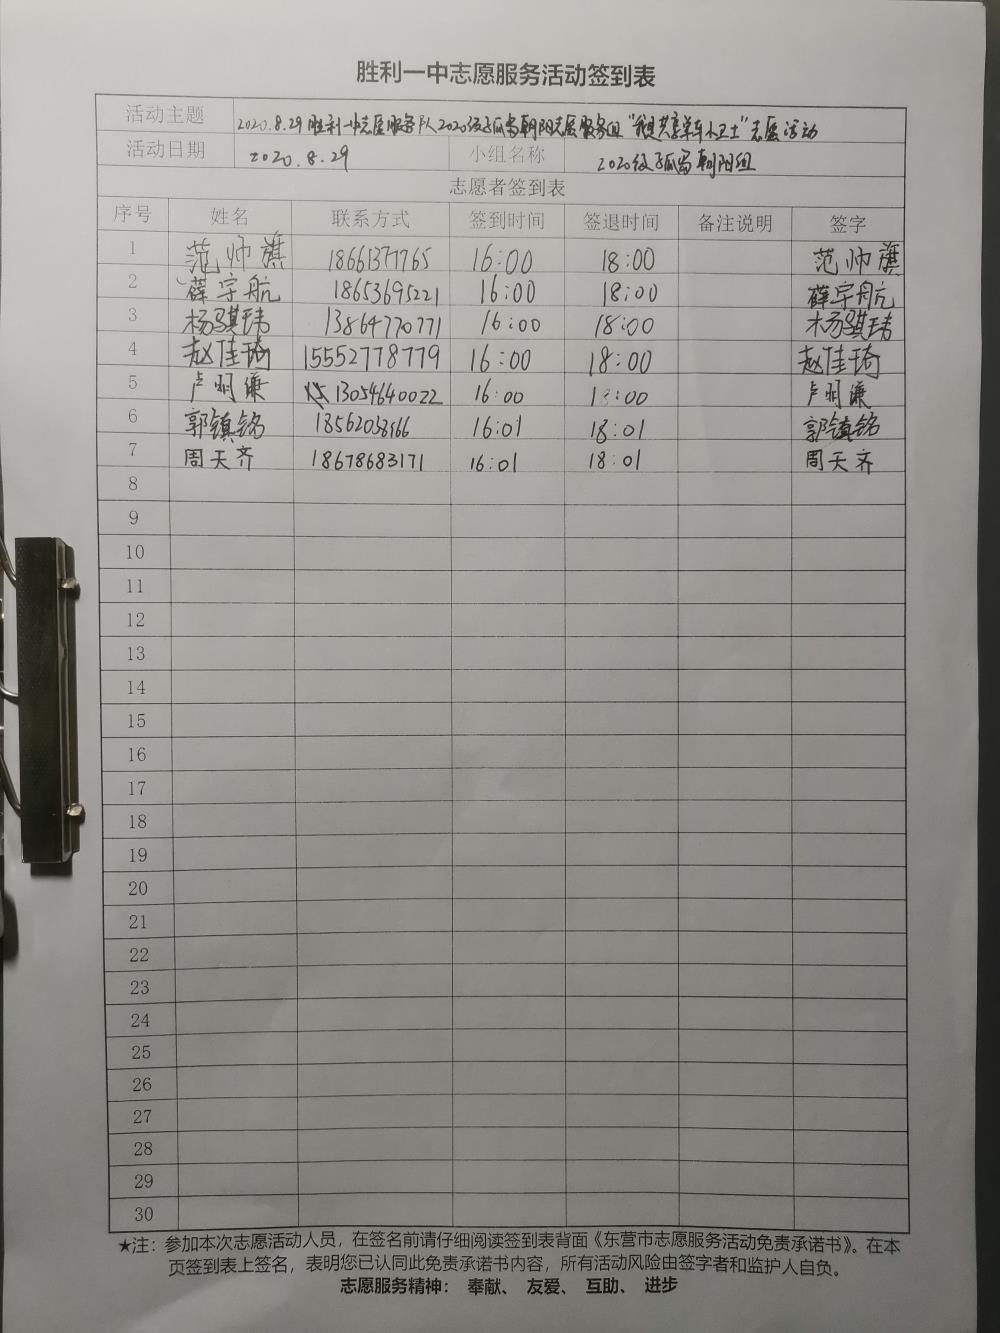 胜利一中志愿服务活动签到表
活动主题 2020.8.29胜利一中志愿服务队2020级孤岛朝阳志愿服务组"我是共享单车小卫士"志愿活动
活动日期 2020.8.29 小组名称 2020级孤岛朝阳组
志愿者签到表
序号 姓名 联系方式 签到时间 签退时间 备注说明 签字
1 范帅旗 18661377765 16:00 18:00 范帅旗
2 薛宇航 18653695221 16:00 18:00 薛宇航
3 杨骐玮 13864770771 16:00 18:00 杨骐玮
4 赵佳琦 15552778779 16:00 18:00 赵佳琦
5 卢明濂 13054640022 16:00 18:00 卢明濂
6 郭镇铭 16:01 18:01 郭镇铭
7 周天齐 18678683171 16:01 18:01 周天齐
8
9
10
11
12
13
14
15
16
17
18
19
20
21
22
23
24
25
26
27
28
29
30
★注：参加本次志愿活动人员，在签名前请仔细阅读签到表背面《东营市志愿服务活动免责承诺书》。在本
页签到表上签名，表明您已认同此免责承诺书内容，所有活动风险由签字者和监护人自负。
志愿服务精神： 奉献、 友爱、 互助、 进步